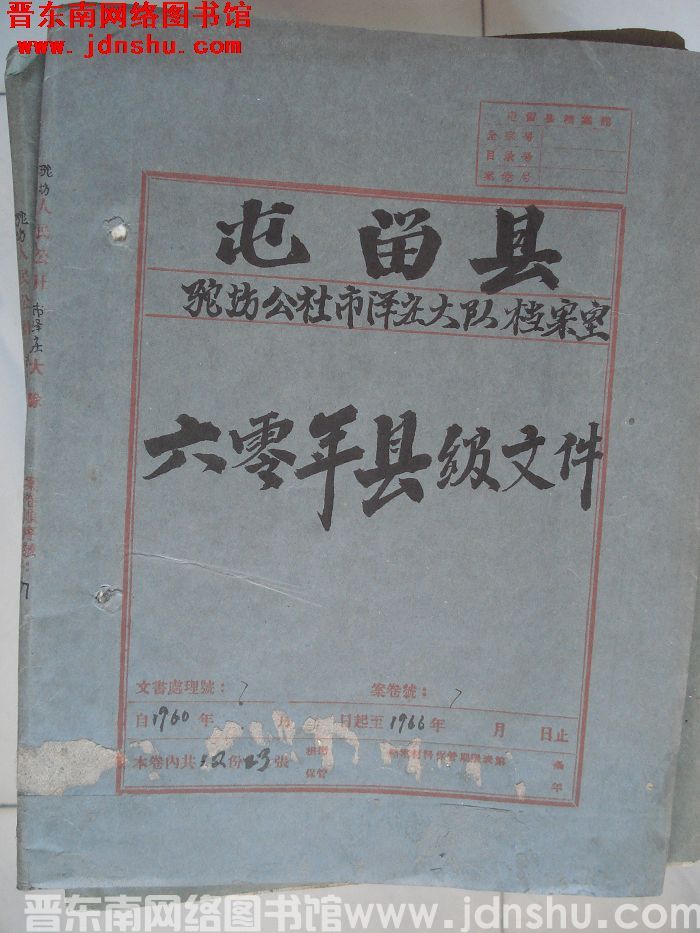 晋东南网络图书馆
www.jdnshu.com
屯留县档案馆
全宗号
目录号
案卷号
屯留县
驼坊公社市泽庄大队档案室
六零年县级文件
驼坊人民公社市泽庄大队
案卷顺序号：7
文書處理號：7
案卷號：7
自1960年 月 日起至1966年 月 日止
本卷內共12份23張
根据
保管
档案材料保管期限表第 条
年
晋东南网络图书馆www.jdnshu.com